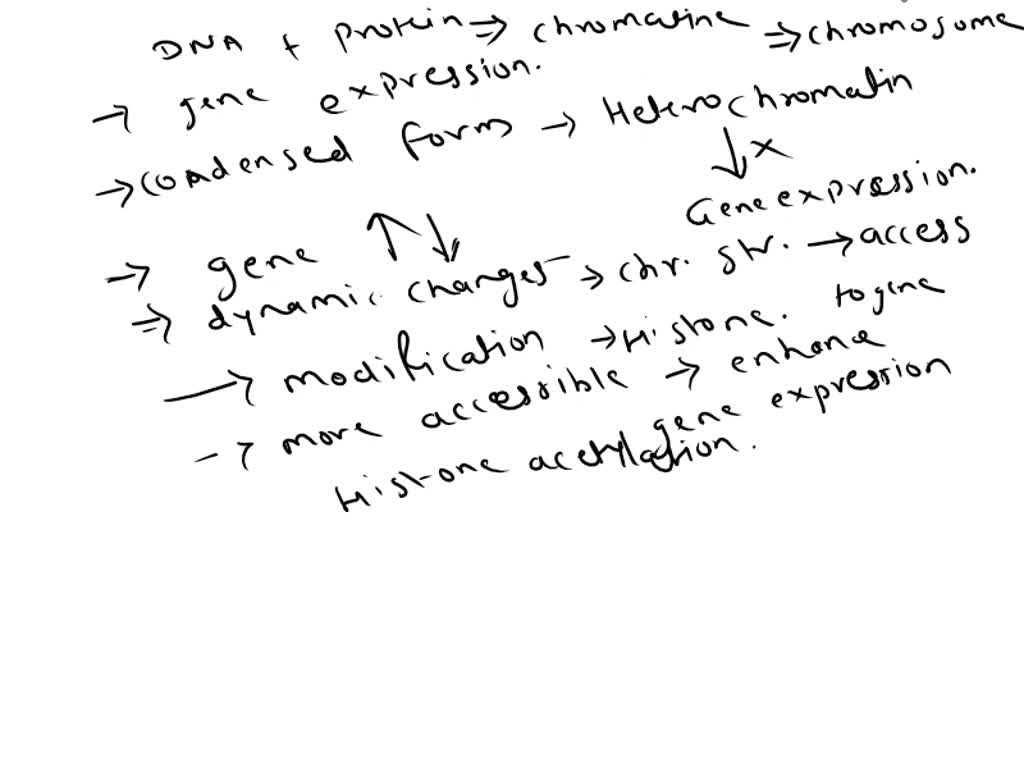 DNA + protein ⇒ chromatine ⇒ chromosome
→ gene expression.
→ condensed form → Heterochromatin
↓x
Gene expression.
→ gene ↑↓
⇒ dynamic changes → chr. str. → access
to gene
→ modification → Histone.
→ more accessible → enhance
gene expression
Histone acetylation.